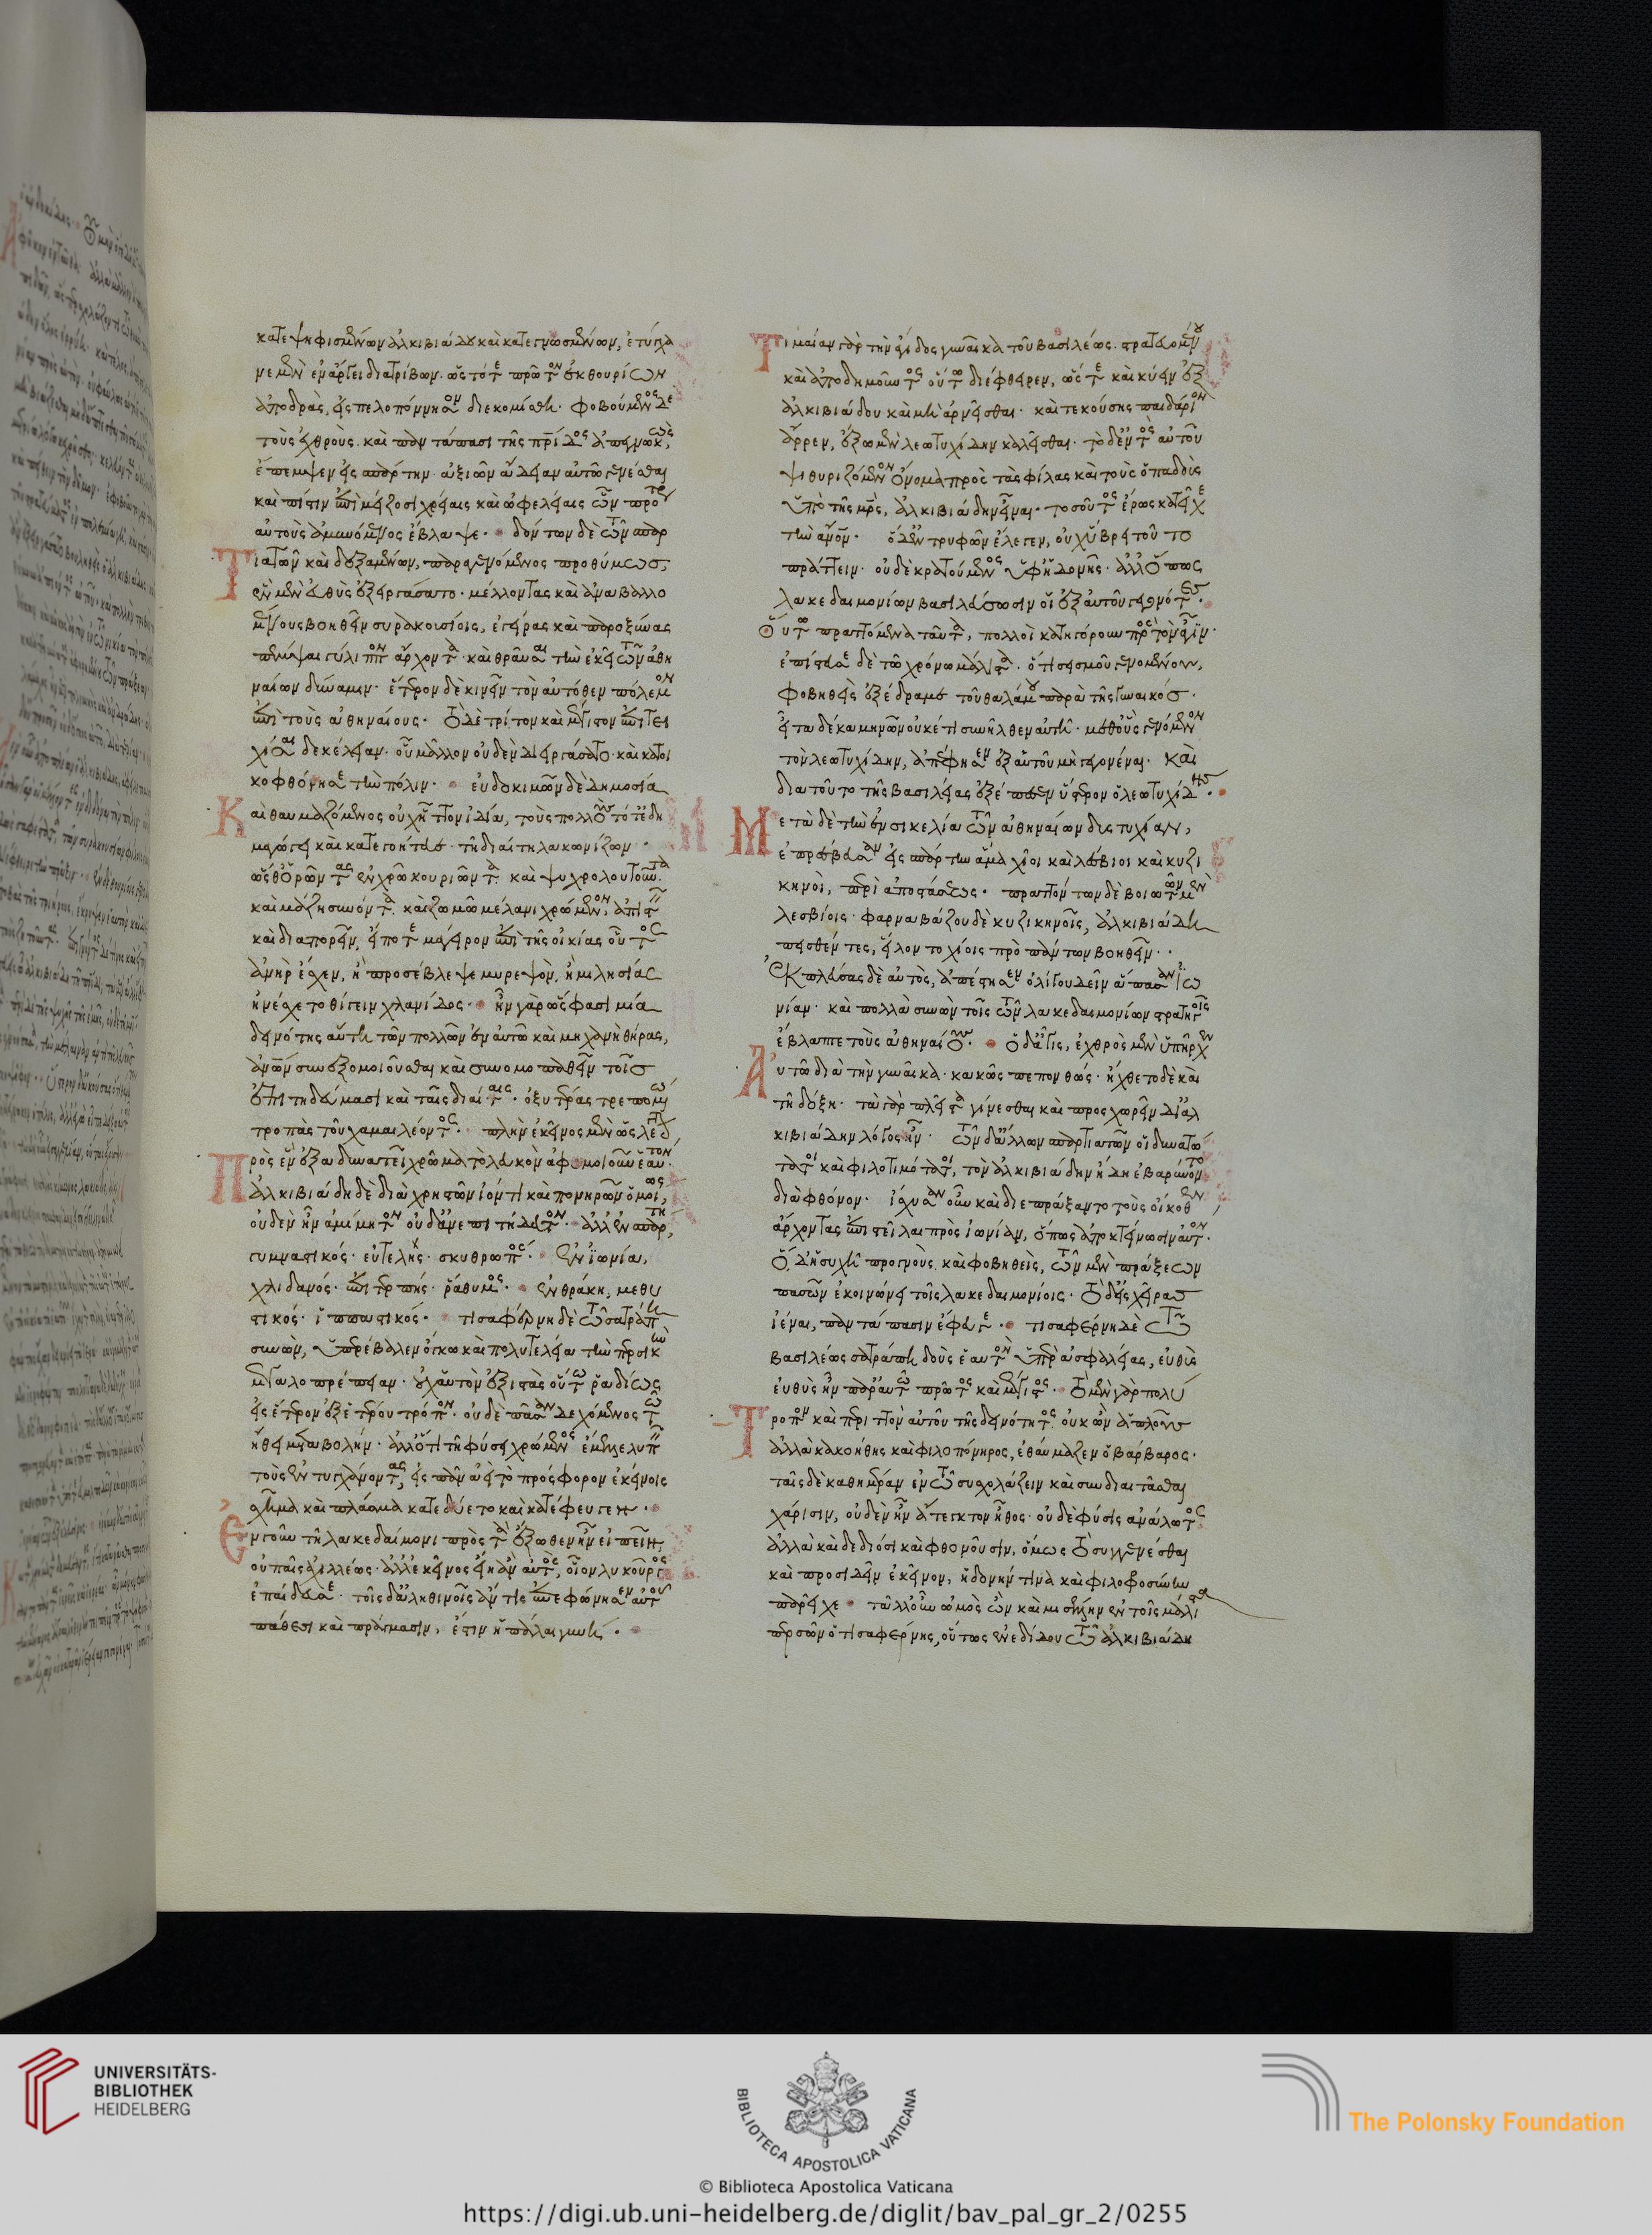 κατεψηφισμένων ἀλκιβιάδου καὶ κατεγνωσμένων, ἐτύγχα
νε μὲν ἐν ἄργει διατρίβων. ὡς τότε πρῶτον ἐκ θουρίων
ἀποδρὰς, εἰς πελοπόννησον διεκομίσθη. φοβούμενος δὲ
τοὺς ἐχθροὺς. καὶ παντάπασι τῆς πρίδος ἀπεγνωκὼς,
ἔπεμψεν εἰς σπάρτην. ἀξιῶν ἄδειαν αὐτῶ γενέσθαι
καὶ πίστιν ἐπὶ μείζοσι χρείαις καὶ ὠφελείαις ὧν πρότερον
αὐτοὺς ἀμυνόμενος ἔβλαψε. δόντων δὲ τῶν σπαρ
τιατῶν καὶ δεξαμένων, παραγενόμενος προθύμως,
ἓν μὲν εὐθὺς ἐξειργάσατο. μέλλοντας καὶ ἀναβαλλο
μένους βοηθεῖν συρακουσίοις, ἐγείρας καὶ παροξύνας
πέμψαι γύλιππον ἄρχοντα. καὶ θραῦσαι τὴν ἐκεῖ τῶν ἀθη
ναίων δύναμιν. ἕτερον δὲ κινεῖν τὸν αὐτόθεν πόλεμον
ἐπὶ τοὺς ἀθηναίους. τὸ δὲ τρίτον καὶ μέγιστον ἐπιτει
χίσαι δεκέλειαν. οὗ μᾶλλον οὐδὲν διειργάσατο. καὶ κατοι
κοφθόρησε τὴν πόλιν. εὐδοκιμῶν δὲ δημοσία
καὶ θαυμαζόμενος οὐχ ἧττον ἰδία, τοὺς πολλοὺς τότε ἐδη
μαγώγει καὶ κατεγοήτευε. τῆ διαίτη λακωνίζων.
ὥσθ' ὁρῶντας ἐν χρῶ κουριῶντα. καὶ ψυχρολουτοῦντα.
καὶ μάζη συνόντα. καὶ ζωμῶ μέλανι χρώμενον, ἀπιστεῖν
καὶ διαπορεῖν, εἴ ποτε μάγειρον ἐπὶ τῆς οἰκίας οὗτος
ἀνὴρ ἔσχεν, ἢ προσέβλεψε μυρεψὸν, ἢ μιλησίας
ἠνέσχετο θιγεῖν χλανίδος. ἦν γὰρ ὥς φασι μία
δεινότης αὕτη τῶν πολλῶν ἐν αὐτῶ καὶ μηχανὴ θήρας,
ἀνῶν συνεξομοιοῦσθαι καὶ συνομοπαθεῖν τοῖς
ἐπιτηδεύμασι καὶ ταῖς διαίταις. ὀξυτέρας τρεπομένω
τροπὰς τοῦ χαμαιλέοντος. πλὴν ἐκεῖνος μὲν ὡς λέγεται
πρὸς ἓν ἐξαδυνατεῖ χρῶμα τὸ λευκὸν ἀφομοιοῦν ἑαυτόν.
ἀλκιβιάδη δὲ διὰ χρηστῶν ἰόντι καὶ πονηρῶν ὁμοίως,
οὐδὲν ἦν ἀμίμητον οὐδ' ἀνεπιτήδευτον. ἀλλ' ἐν σπάρτη,
γυμναστικός. εὐτελής. σκυθρωπός. ἐν ἰωνία,
χλιδανός. ἐπιτερπής. ῥάθυμος. ἐν θράκη, μεθυ
στικός. ἱππαστικός. τισαφέρνη δὲ τῶ σατράπη
συνὼν, ὑπερέβαλεν ὄγκω καὶ πολυτελεία τὴν περσικὴν
μεγαλοπρέπειαν. οὐχ αὑτὸν ἐξιστὰς οὕτω ῥαδίως
εἰς ἕτερον ἐξ ἑτέρου τρόπον. οὐδὲ πᾶσαν δεχόμενος τῶ
ἤθει μεταβολήν. ἀλλ' ὅτι τῆ φύσει χρώμενος ἔμελλε λυπεῖν
τοὺς ἐντυγχάνοντας, εἰς πᾶν ἀεὶ τὸ πρόσφορον ἐκείνοις
σχῆμα καὶ πλάσμα κατεδύετο καὶ κατέφευγεν.
ἐν γοῦν τῆ λακεδαίμονι πρὸς τὰ ἔξωθεν ἦν εἰπεῖν,
οὐ παῖς ἀχιλλέως. ἀλλ' ἐκεῖνος εἴη ἂν αὐτὸς, οἷον λυκοῦργος
ἐπαίδευσε. τοῖς δ' ἀληθινοῖς ἄν τις ἐπεφώνησεν αὐτοῦ
πάθεσι καὶ πράγμασιν, ἔστιν ἡ πάλαι γυνή.
τιμαίαν γὰρ τὴν ἄγιδος γυναῖκα τοῦ βασιλέως. στρατευομένου
καὶ ἀποδημοῦντος οὕτω διέφθειρεν, ὥστε καὶ κύειν ἐξ
ἀλκιβιάδου καὶ μὴ ἀρνεῖσθαι. καὶ τεκούσης παιδάριον
ἄρρεν, ἔξω μὲν λεωτυχίδην καλεῖσθαι. τὸ δ' ἐντὸς αὐτοῦ
ψιθυριζόμενον ὄνομα πρὸς τὰς φίλας καὶ τοὺς ὀπαδοὺς
ὑπὸ τῆς μρς, ἀλκιβιάδην εἶναι. τοσοῦτος ἔρως κατεῖχε
τὴν ἄνον. ὁ δ' ἐντρυφῶν ἔλεγεν, οὐχ ὕβρει τοῦτο
πράττειν. οὐδὲ κρατούμενος ὑφ' ἡδονῆς. ἀλλ' ὅπως
λακεδαιμονίων βασιλεύσωσιν οἱ ἐξ αὐτοῦ γεγονότες.
οὕτω πραττόμενα ταῦτα, πολλοὶ κατηγόρουν πρὸς τὸν ἄγιν.
ἐπίστευσε δὲ τῶ χρόνω μάλιστα. ὅτι σεισμοῦ γενομένου,
φοβηθεὶς ἐξέδραμε τοῦ θαλάμου παρὰ τῆς γυναικός.
εἶτα δέκα μηνῶν οὐκέτι συνῆλθεν αὐτῆ. μεθ' οὓς γενόμενον
τὸν λεωτυχίδην, ἀπέφησεν ἐξ αὐτοῦ μὴ γεγονέναι. καὶ
διὰ τοῦτο τῆς βασιλείας ἐξέπεσεν ὕστερον ὁ λεωτυχίδης.
μετὰ δὲ τὴν ἐν σικελία τῶν ἀθηναίων δυστυχίαν,
ἐπρέσβευσαν εἰς σπάρτην ἅμα χῖοι καὶ λέσβιοι καὶ κυζι
κηνοὶ, περὶ ἀποστάσεως. πραττόντων δὲ βοιωτῶν μὲν
λεσβίοις. φαρναβάζου δὲ κυζικηνοῖς, ἀλκιβιάδη
πεισθέντες, εἵλοντο χίοις πρὸ πάντων βοηθεῖν.
ἐκπλεύσας δὲ αὐτὸς, ἀπέστησεν ὀλίγου δεῖν ἅπασαν ἰω
νίαν. καὶ πολλὰ συνὼν τοῖς τῶν λακεδαιμονίων στρατηγοῖς
ἔβλαπτε τοὺς ἀθηναίους. ὁ δ' ἆγις, ἐχθρὸς μὲν ὑπῆρχεν
αὐτῶ διὰ τὴν γυναῖκα. κακῶς πεπονθώς. ἤχθετο δὲ καὶ
τῆ δόξη. τὰ γὰρ πλεῖστα γίνεσθαι καὶ προσχωρεῖν δι' ἀλ
κιβιάδην λόγος ἦν. τῶν δ' ἄλλων σπαρτιατῶν οἱ δυνατώ
τατοι καὶ φιλοτιμότατοι, τὸν ἀλκιβιάδην ἤδη ἐβαρύνοντο
διὰ φθόνον. ἴσχυσαν οὖν καὶ διεπράξαντο τοὺς οἴκοθεν
ἄρχοντας ἐπιστεῖλαι πρὸς ἰωνίαν, ὅπως ἀποκτείνωσιν αὐτόν.
ὁ δ' ἡσυχῆ προγνοὺς. καὶ φοβηθεὶς, τῶν μὲν πράξεων
πασῶν ἐκοινώνει τοῖς λακεδαιμονίοις. τὸ δ' εἰς χεῖρας
ἰέναι, παντάπασιν ἔφευγε. τισαφέρνη δὲ τῶ
βασιλέως σατράπη δοὺς ἑαυτὸν ὑπὲρ ἀσφαλείας, εὐθὺς
εὐθὺς ἦν παρ' αὐτῶ πρῶτος καὶ μέγιστος. τὸ μὲν γὰρ πολύ
τροπον καὶ περιττὸν αὐτοῦ τῆς δεινότητος. οὐκ ὢν ἁπλοῦς
ἀλλὰ κακοήθης καὶ φιλοπόνηρος, ἐθαύμαζεν ὁ βάρβαρος.
ταῖς δὲ καθημέραν ἐν τῶ συσχολάζειν καὶ συνδιαιτᾶσθαι
χάρισιν, οὐδὲν ἦν ἄτεγκτον ἦθος. οὐδὲ φύσις ἀνάλωτος
ἀλλὰ καὶ δεδιόσι καὶ φθονοῦσιν, ὅμως τὸ συγγενέσθαι
καὶ προσιδεῖν ἐκεῖνον, ἡδονήν τινα καὶ φιλοφροσύνην
παρεῖχε. τἄλλ' οὖν ὠμὸς ὢν καὶ μισέλλην ἐν τοῖς μάλιστα
περσῶν ὁ τισαφέρνης, οὕτως ἐνεδίδου τῶ ἀλκιβιάδη
UNIVERSITÄTS-
BIBLIOTHEK
HEIDELBERG
BIBLIOTECA APOSTOLICA VATICANA
© Biblioteca Apostolica Vaticana
The Polonsky Foundation
https://digi.ub.uni-heidelberg.de/diglit/bav_pal_gr_2/0255